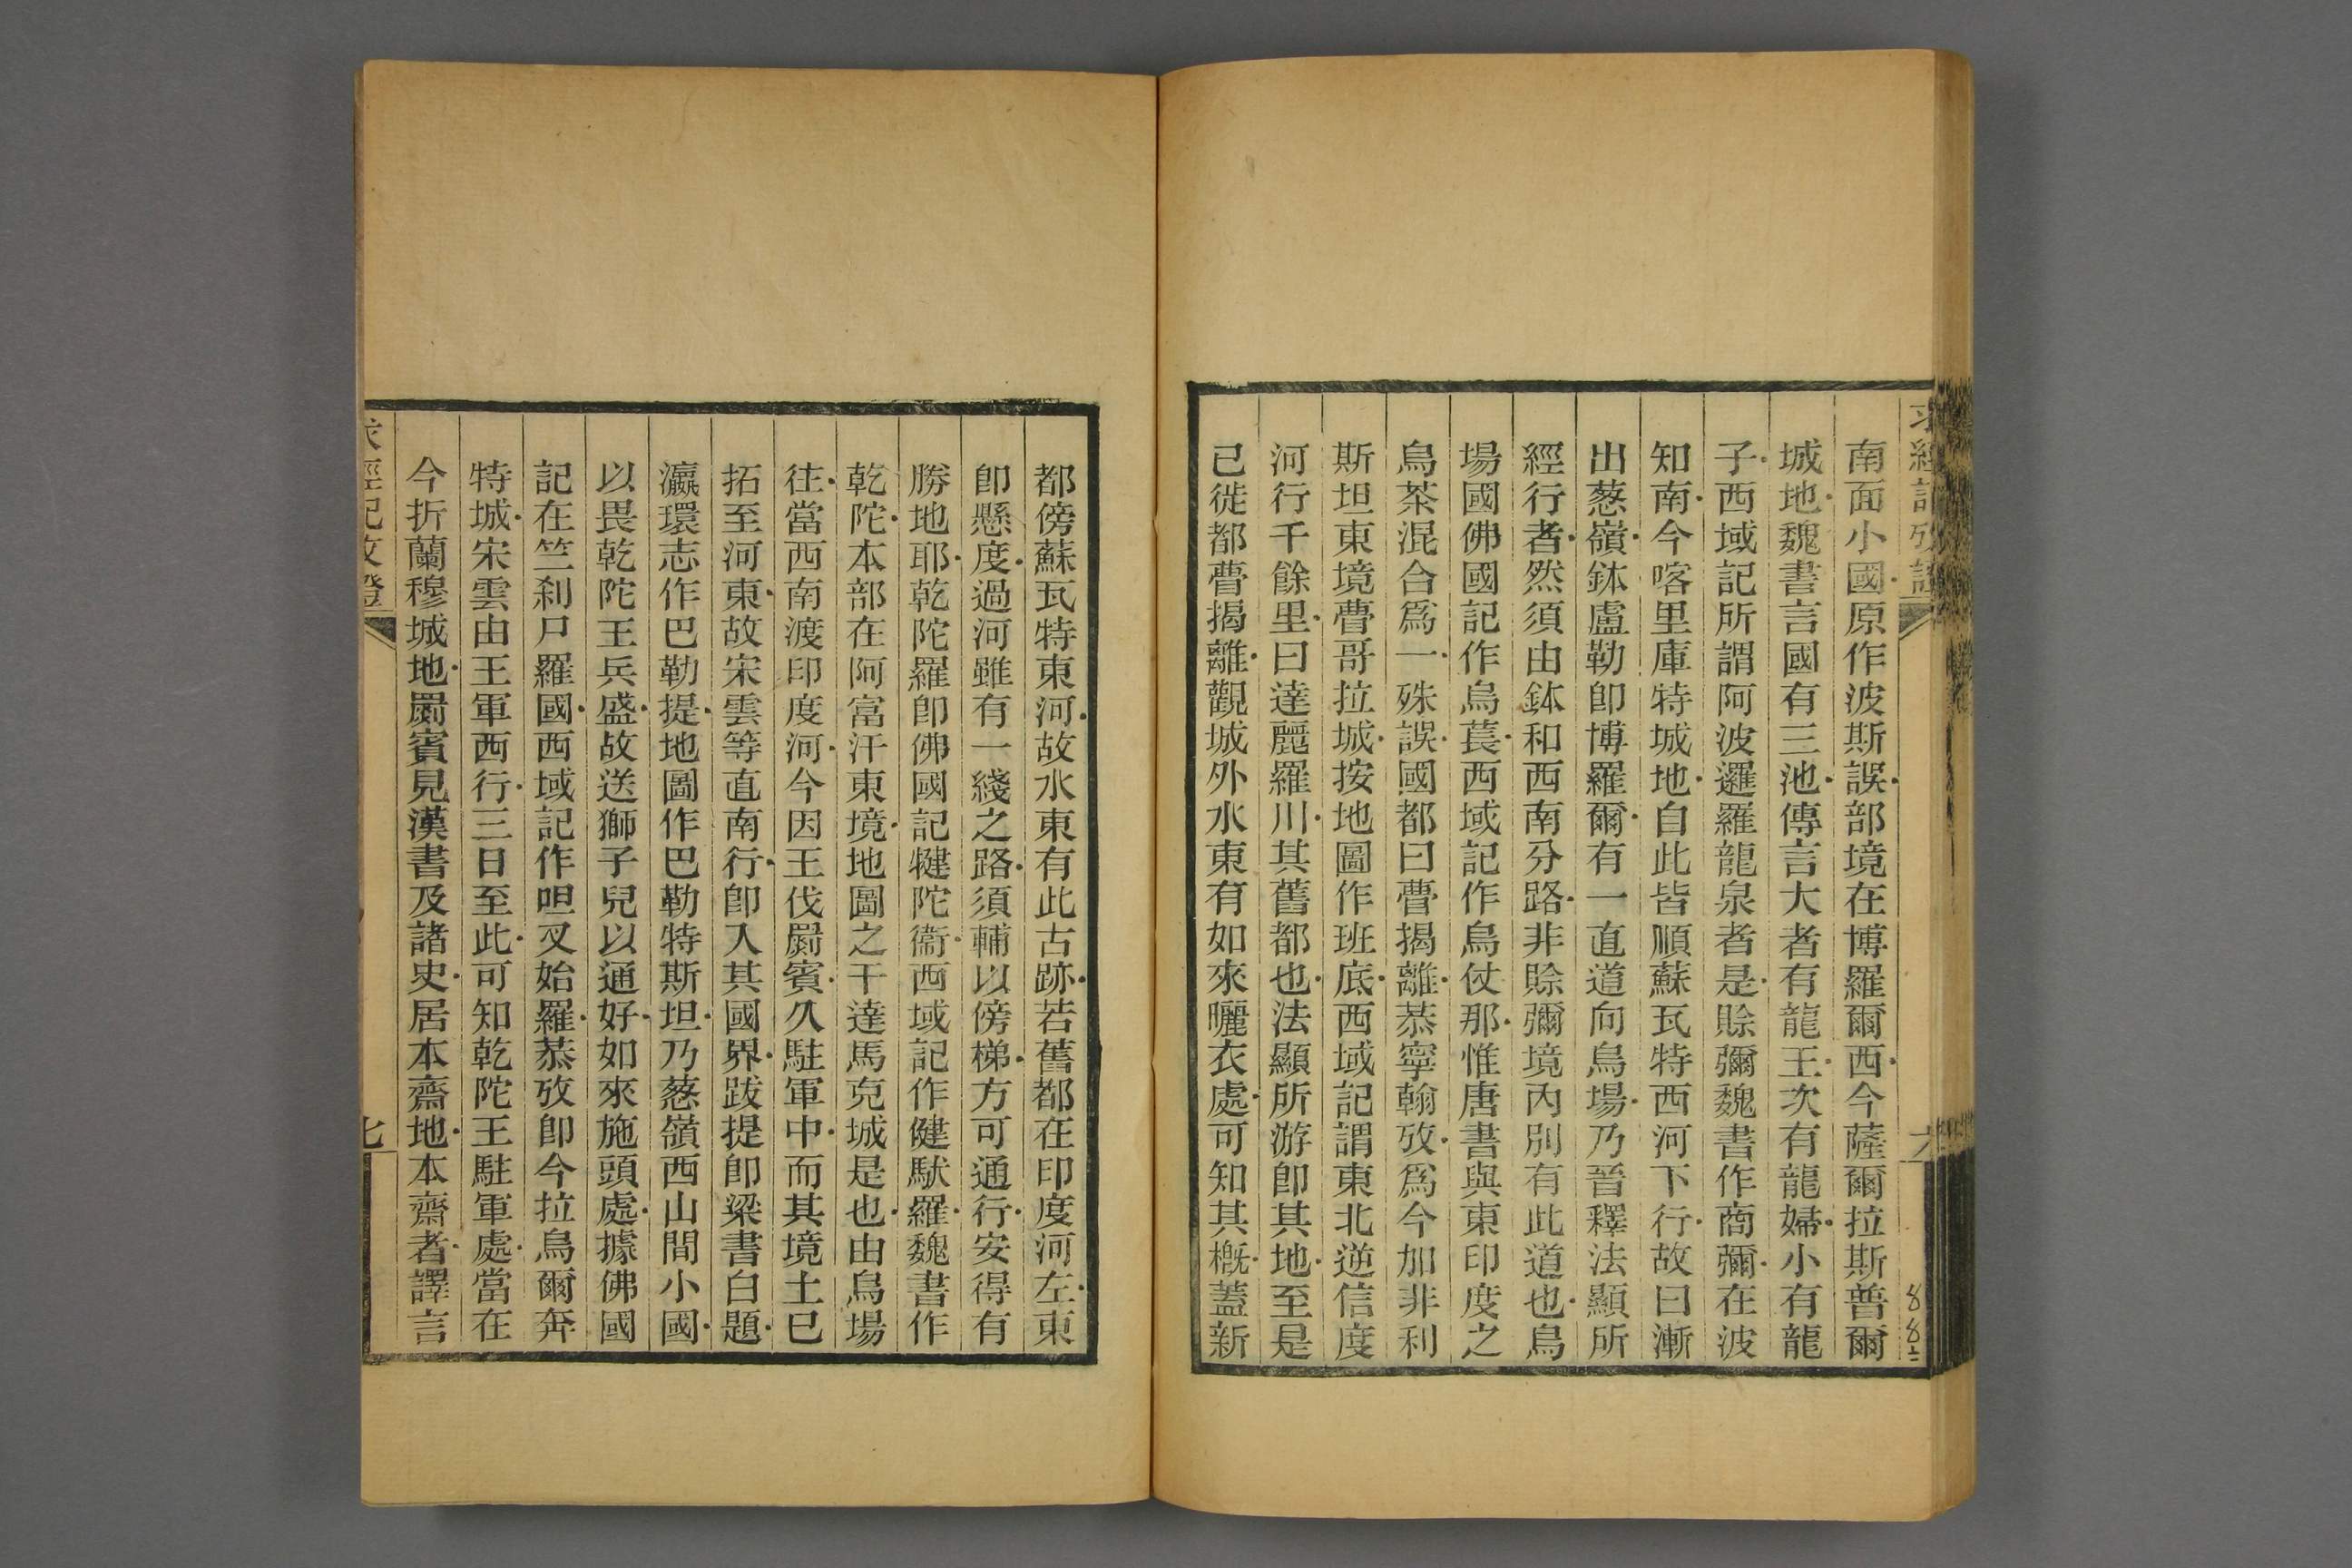 求經記攷證
六
88
南面小國原作波斯誤部境在博羅爾西今薩爾拉斯普爾
城地魏書言國有三池傳言大者有龍王次有龍婦小有龍
子西域記所謂阿波邏羅龍泉者是賒彌魏書作商彌在波
知南今喀里庫特城地自此皆順蘇瓦特西河下行故曰漸
出葱嶺鉢盧勒卽博羅爾有一直道向烏場乃晉釋法顯所
經行者然須由鉢和西南分路非賒彌境內別有此道也烏
場國佛國記作烏萇西域記作烏仗那惟唐書與東印度之
烏茶混合爲一殊誤國都曰瞢揭離恭寧翰攷爲今加非利
斯坦東境瞢哥拉城按地圖作班底西域記謂東北逆信度
河行千餘里曰達麗羅川其舊都也法顯所游卽其地至是
已徙都瞢揭離觀城外水東有如來曬衣處可知其概蓋新
都傍蘇瓦特東河故水東有此古跡若舊都在印度河左東
卽懸度過河雖有一綫之路須輔以傍梯方可通行安得有
勝地耶乾陀羅卽佛國記犍陀衞西域記作健馱羅魏書作
乾陀本部在阿富汗東境地圖之干達馬克城是也由烏場
往當西南渡印度河今因王伐罽賓久駐軍中而其境土已
拓至河東故宋雲等直南行卽入其國界跋提卽梁書白題
瀛環志作巴勒提地圖作巴勒特斯坦乃葱嶺西山間小國
以畏乾陀王兵盛故送獅子兒以通好如來施頭處據佛國
記在竺刹尸羅國西域記作呾叉始羅恭攷卽今拉烏爾奔
特城宋雲由王軍西行三日至此可知乾陀王駐軍處當在
今折蘭穆城地罽賓見漢書及諸史居本齋地本齋者譯言
求經記攷證
七